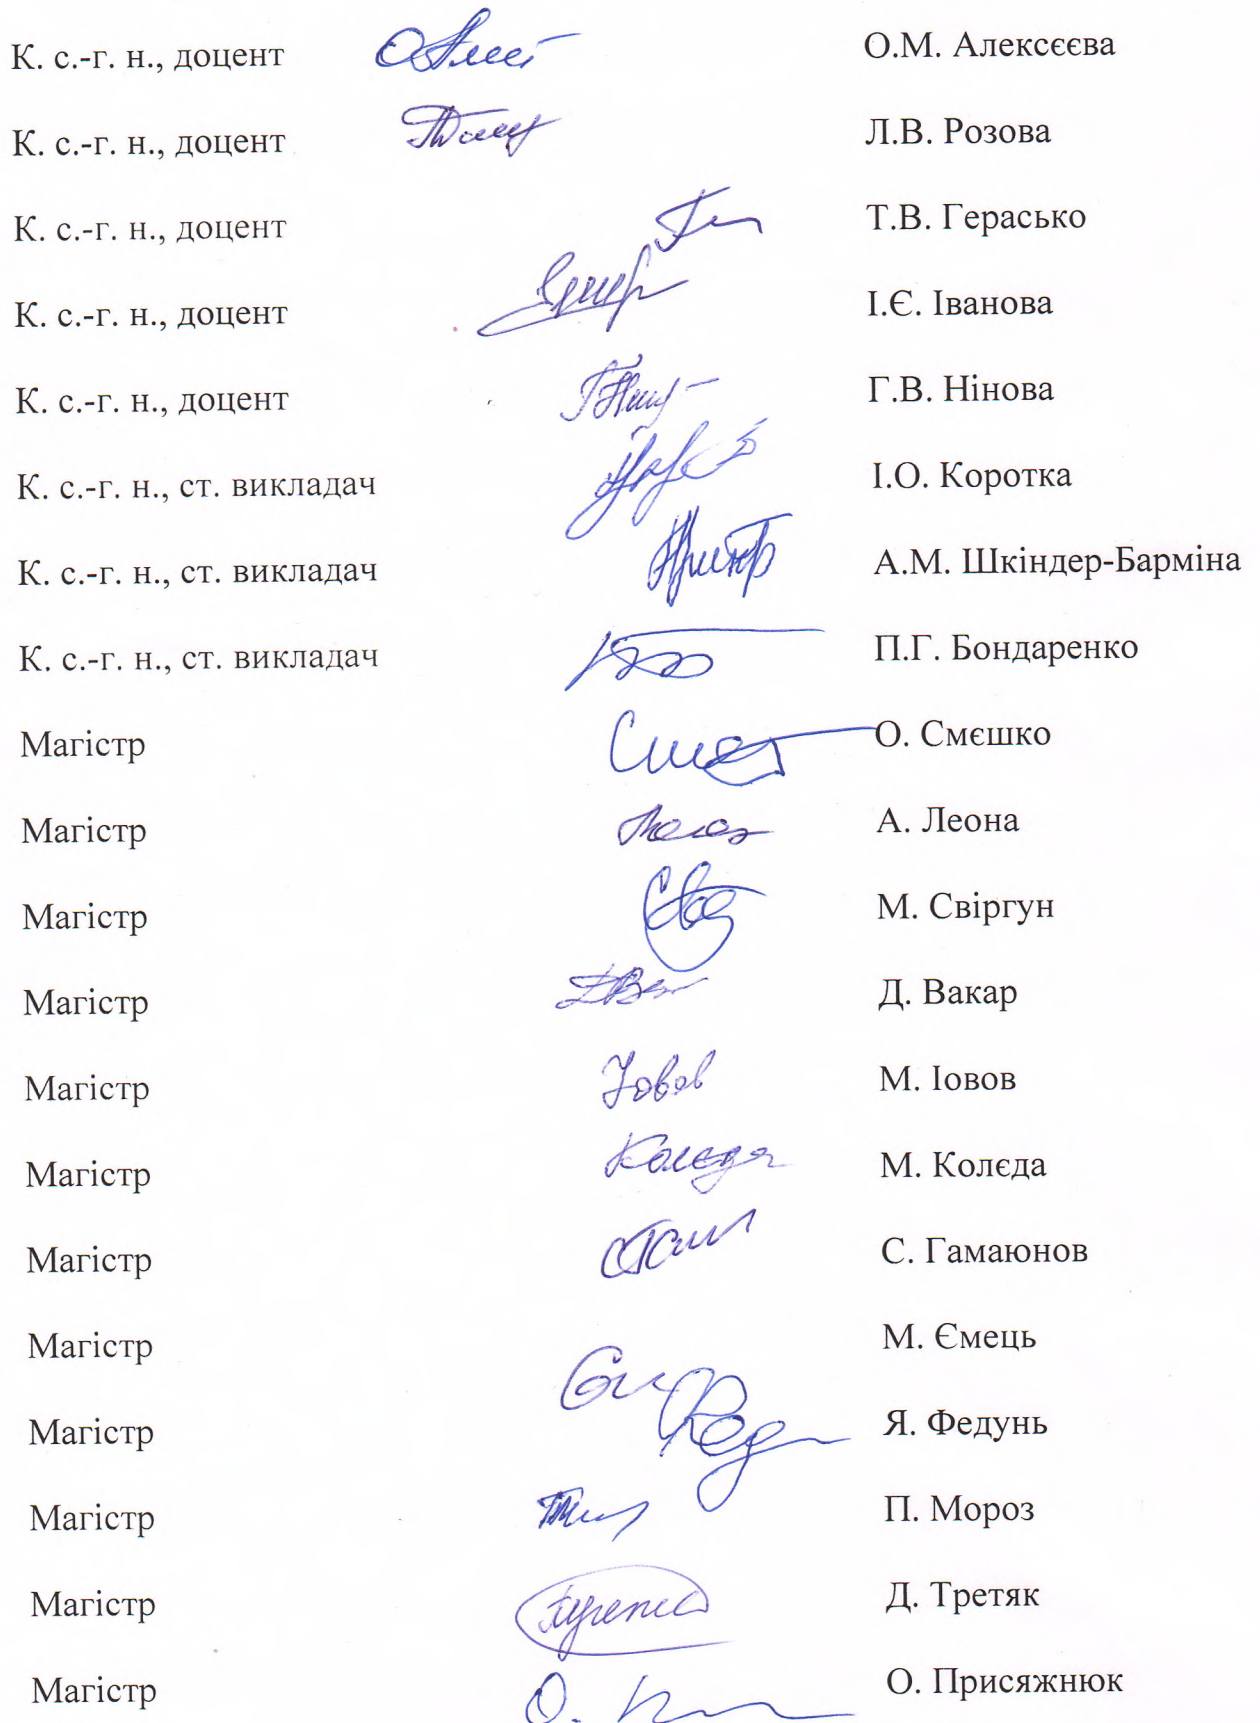 К. с.-г. н., доцент О.М. Алексєєва
К. с.-г. н., доцент Л.В. Розова
К. с.-г. н., доцент Т.В. Герасько
К. с.-г. н., доцент І.Є. Іванова
К. с.-г. н., доцент Г.В. Нінова
К. с.-г. н., ст. викладач І.О. Коротка
К. с.-г. н., ст. викладач А.М. Шкіндер-Барміна
К. с.-г. н., ст. викладач П.Г. Бондаренко
Магістр О. Смєшко
Магістр А. Леона
Магістр М. Свіргун
Магістр Д. Вакар
Магістр Іовов М. Іовов
Магістр Колєда М. Колєда
Магістр С. Гамаюнов
Магістр М. Ємець
Магістр Я. Федунь
Магістр П. Мороз
Магістр Д. Третяк
Магістр О. Присяжнюк